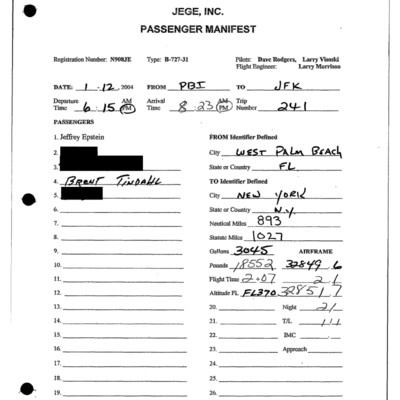 JEGE, INC.
PASSENGER MANIFEST
Registration Number: N908JE Type: B-727-31 Pilots: Dave Rodgers, Larry Visoski
Flight Engineer: Larry Morrison
DATE: 1-12, 2004 FROM PBI TO JFK
Departure Time 6:15 AM PM Arrival Time 8:23 AM PM Trip Number 241
PASSENGERS
1. Jeffrey Epstein FROM Identifier Defined
2. City WEST PALM BEACH
3. State or Country FL
4. BRENT TINDALL TO Identifier Defined
5. City NEW YORK
6. State or Country N.Y.
7. Neutical Miles 893
8. Statute Miles 1027
9. Gallons 3045 AIRFRAME
10. Pounds 18552 32849 6
11. Flight Time 2:07 2 1
12. Altitude FL FL370 32851 7
13. 20. Night 2/
14. 21. T/L 1/1
15. 22. IMC
16. 23. Approach
17. 24.
18. 25.
19. 26.